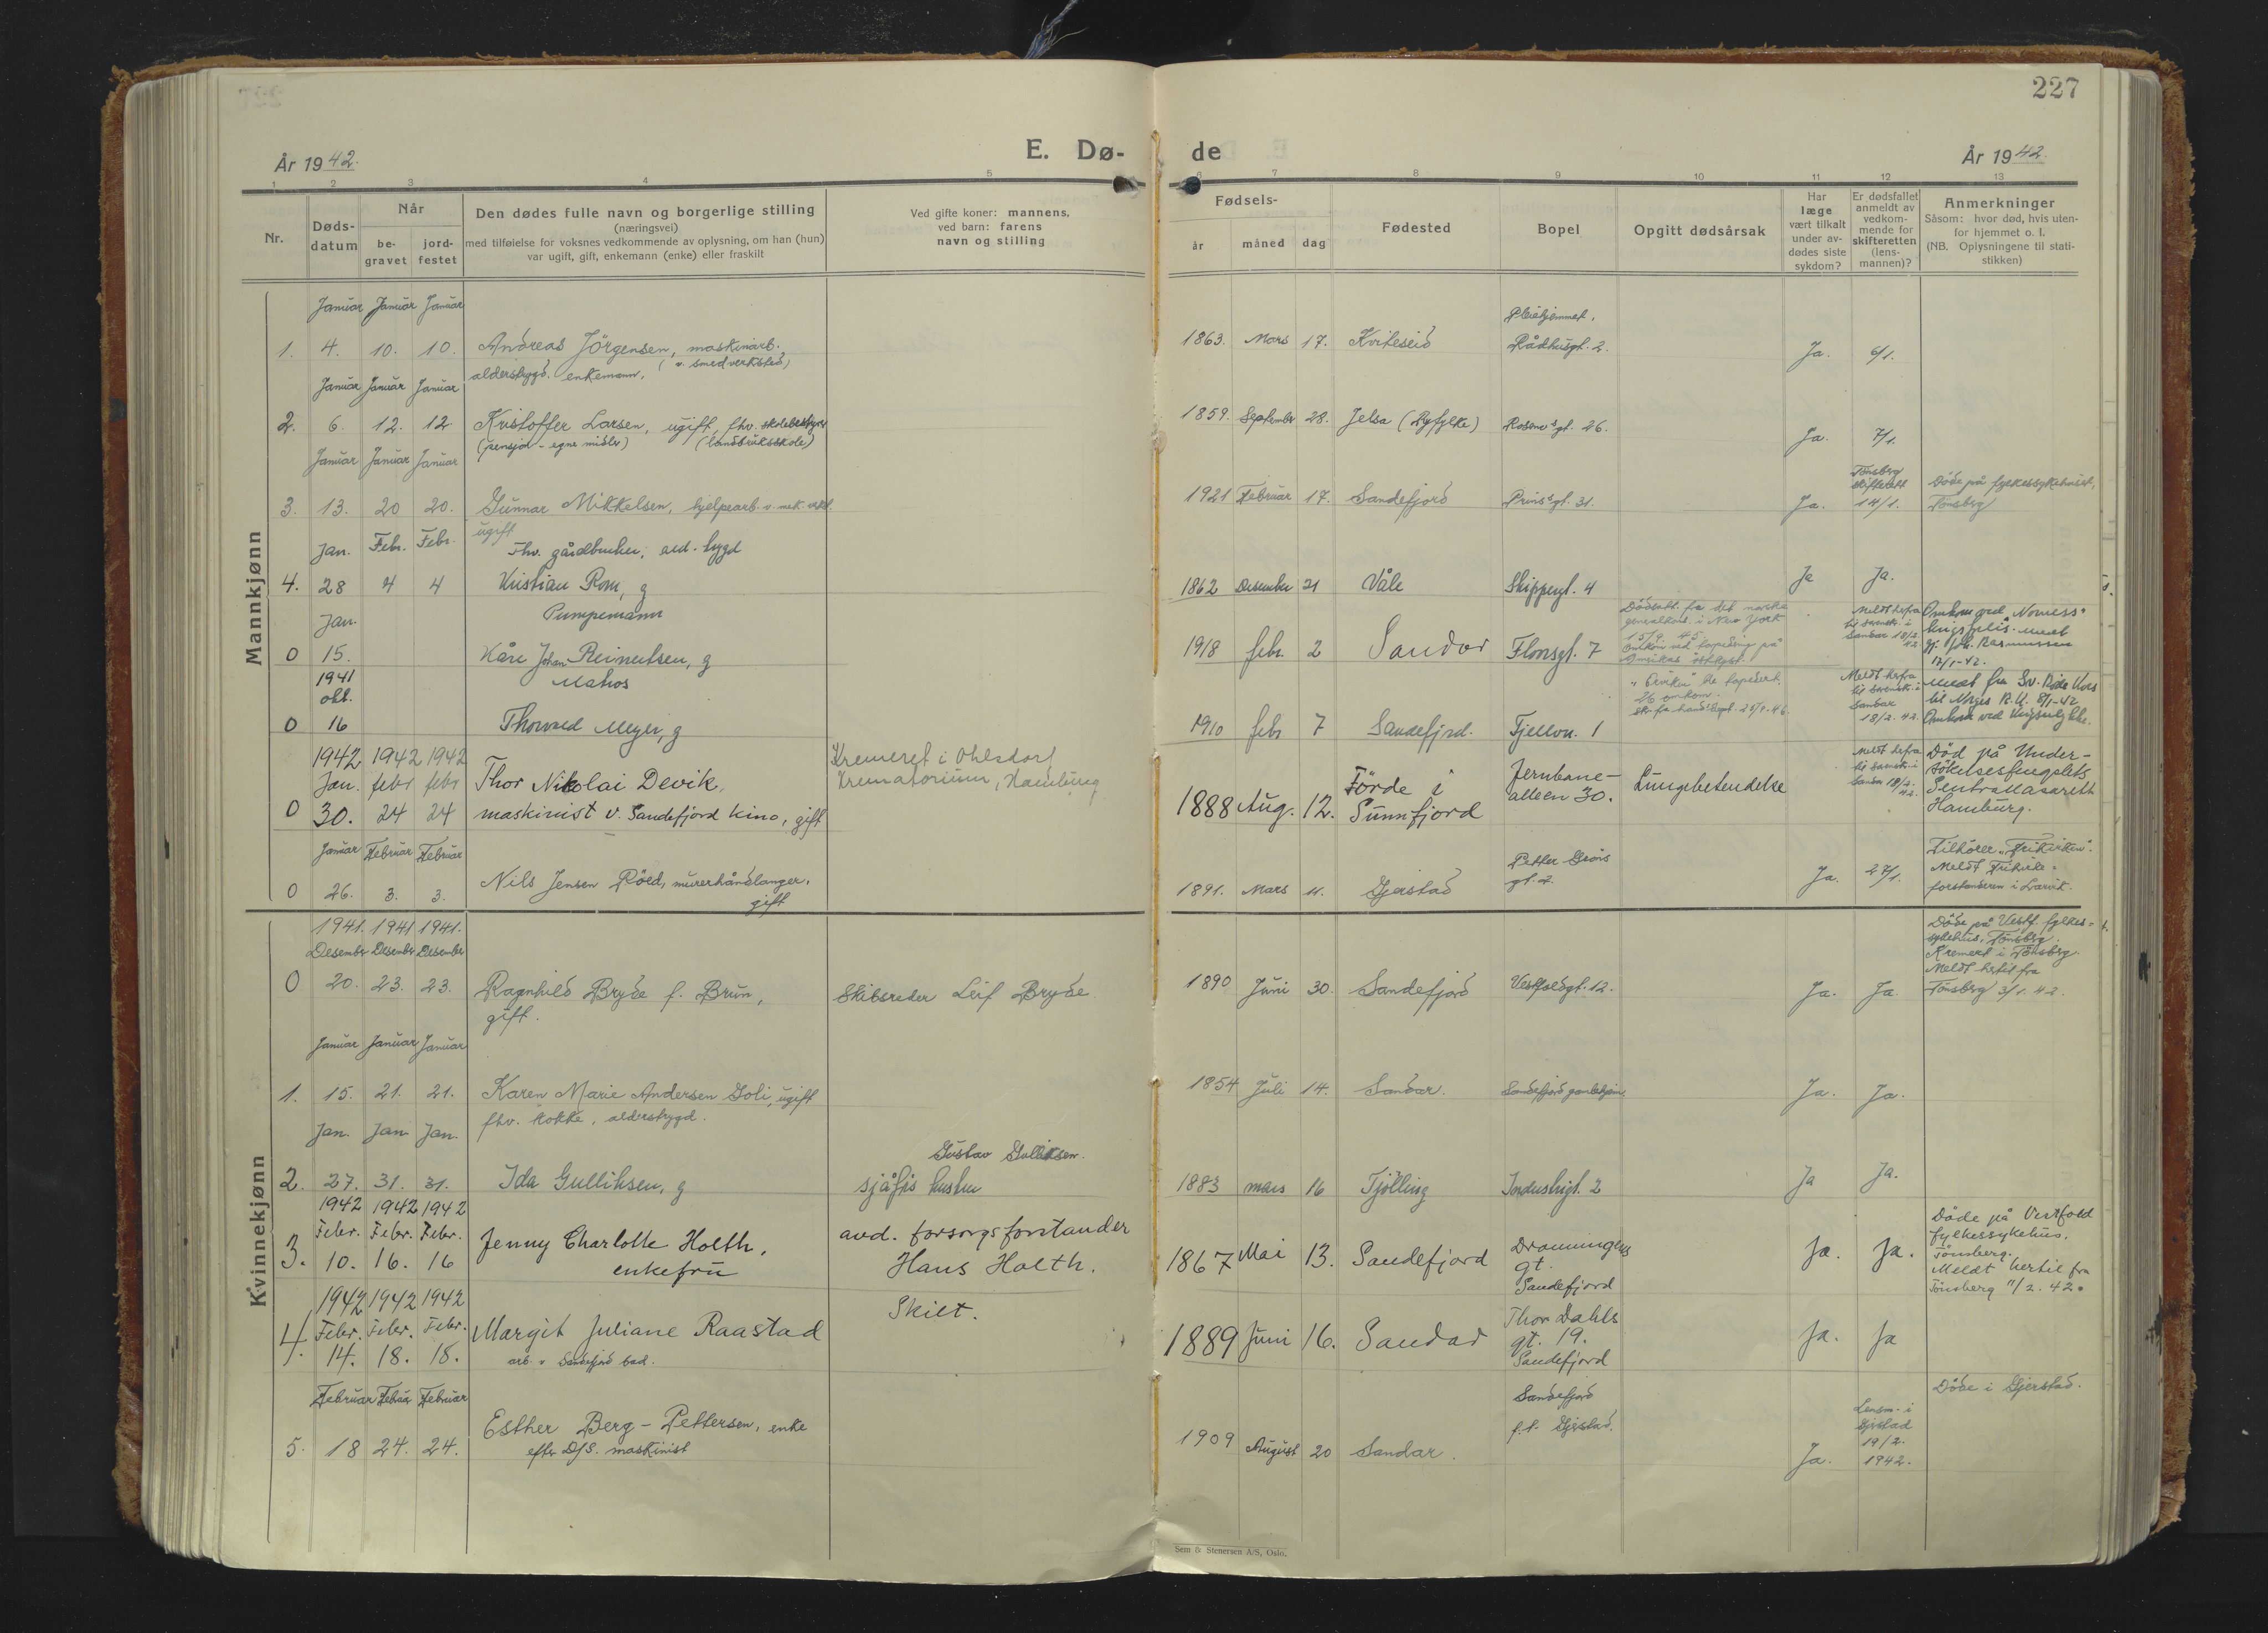 227
År 1942.
E. Dø-
de
År 1942.
1 2 3 4 5 6 7 8 9 10 11 12 13
Nr.
Døds-
datum
Når
be-
gravet
jord-
festet
Den dødes fulle navn og borgerlige stilling
(næringsvei)
med tilføielse for voksnes vedkommende av oplysning, om han (hun)
var ugift, gift, enkemann (enke) eller fraskilt
Ved gifte koner: mannens,
ved barn: farens
navn og stilling
Fødsels-
år måned dag
Fødested
Bopel
Opgitt dødsårsak
Har
læge
vært tilkalt
under av-
dødes siste
sykdom?
Er dødsfallet
anmeldt av
vedkom-
mende for
skifteretten
(lens-
mannen)?
Anmerkninger
Såsom: hvor død, hvis uten-
for hjemmet o. l.
(NB. Oplysningene til stati-
stikken)
Mannkjønn
Januar Januar Januar
Pleiehjemmet,
1. 4. 10. 10. Andreas Jörgensen, maskinarb. 1863. Mars 17. Kviteseid Rådhusgt. 2. Ja. 6/1.
alderstrygd, enkemann, (v. smedverksted)
Januar Januar Januar
2. 6. 12. 12 Kristoffer Larsen, ugift, fhv. skolebestyrer 1859. September 28. Jelsa (Ryfylke) Rosenv's gt. 26. Ja. 7/1.
(pensjon - egne midler) (landbruksskole)
Januar Januar Januar
3. 13. 20 20. Gunnar Mikkelsen, hjelpearb. v. mek. verkst. 1921 Februar 17. Sandefjord Prins's gt. 31. Ja.
ugift
Tönsberg
skifterett
14/1.
Döde på fylkessykehuset,
Tönsberg
Jan. Febr. Febr. Fhv. gårdbruker, ald. trygd
4. 28 4 4 Kristian Rom, g 1862 Desember 21 Våle Skippergt. 4 Ja Ja.
Jan. Pumpemann
0 15. Kåre Johan Reinertsen, g 1918 febr. 2 Sandar Florsgt. 7
Dödsatt. fra det norske
generalkons. i New York
15/9. 45.
Omkom ved torpedering på
Amerikas östkyst.
Meldt herfra
til sorensk. i
Sandar 18/2.
42
Omkom ved "Norness"
krigsforlis. meldt
12/1-42.
1941
okt. Matros
0 16 Thorvald Meyer, g 1910 febr 7 Sandefjord. Fjellvn. 1
26 omkom.
Meldt herfra
til sorensk. i
Sandar
18/2. 42.
Meldt fra Sv. Röde Kors
til Norges R.K. 8/1-42
Omkom ved krigsulykke.
1942 1942 1942
Jan. febr febr
0 30. 24 24
Thor Nikolai Devik,
maskinist v. Sandefjord kino, gift
Kremeret i Ohlsdorf
Krematorium, Hamburg
1888 Aug. 12. Förde i
Sunnfjord
Jernbane-
alleen 30.
Lungebetendelse
Meldt herfra
til sorensk. i
Sandar 18/2.
42.
Död på Under-
sökelsesfengslets
Sentrallasarett
Hamburg.
Januar Februar Februar
0 26. 3. 3. Nils Jensen Röed, murerhåndlanger,
gift
1891. Mars 11. Gjerstad
Petter Gröns
gt. 2.
Ja. 27/1.
Tilhörer "Frikirken".
Meldt Frikirke-
forstanderen i Larvik.
Kvinnekjønn
1941. 1941 1941.
Desembr Desembr Desember
0 20. 23. 23. Ragnhild Bryde f. Brun,
gift.
Skibsreder Leif Bryde.
1890 Juni 30. Sandefjord Vestfoldgt. 12. Ja. Ja.
Döde på Vestf. fylkes-
sykehus, Tönsberg.
Kremert i Tönsberg.
Meldt hertil fra
Tönsberg 3/1. 42.
Januar Januar Januar
1. 15. 21. 21. Karen Marie Andersen Goli, ugift
fhv. kokke, alderstrygd.
1854 Juli 14. Sandar. Sandefjord gamlehjem. Ja. Ja.
Jan. Jan. Jan.
2. 27. 31. 31. Ida Gulliksen, g
Gustav Gulliksen.
sjåførs hustru
1883 mars 16 Tjölling Industrigt. 2 Ja Ja.
1942 1942 1942
Febr. Febr. Febr.
3. 10. 16. 16 Jenny Charlotte Holth,
enkefru
avd. forsorgsforstander
Hans Holth.
1867 Mai 13. Sandefjord
Dronningens
gt.
Sandefjord
Ja. Ja.
Döde på Vestfold
fylkessykehus,
Tönsberg.
Meldt hertil fra
Tönsberg 11/2. 42.
1942 1942 1942
Febr. Febr. Febr.
4. 14. 18. 18. Margit Juliane Raastad
arb. v Sandefjord bad.
Skilt.
1889 Juni 16. Sandar
Thor Dahls
gt. 19.
Sandefjord
Ja. Ja
Februar Februar Februar
5. 18 24. 24. Esther Berg-Pettersen, enke
efter D/S. maskinist
1909 August 20 Sandar.
Sandefjord
f.t. Gjerstad.
Ja.
Lensm. i
Gjerstad
19/2.
1942.
Döde i Gjerstad.
Sem & Stenersen A/S, Oslo.